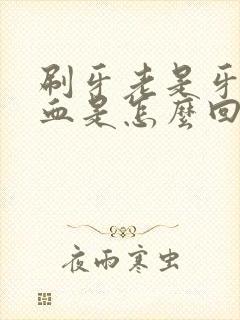 刷牙老是牙
血是怎麼回
夜雨寒虫